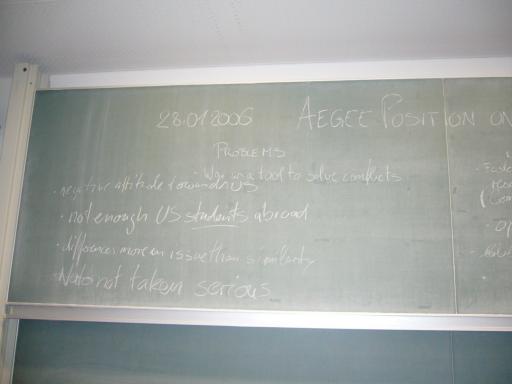 28.01.2006 AEGEE POSITION ON
PROBLEMS
• War as a tool to solve conflicts
• negative attitude towards US
• not enough US students abroad
• differences more an issue than similarity
• Nato not taken serious